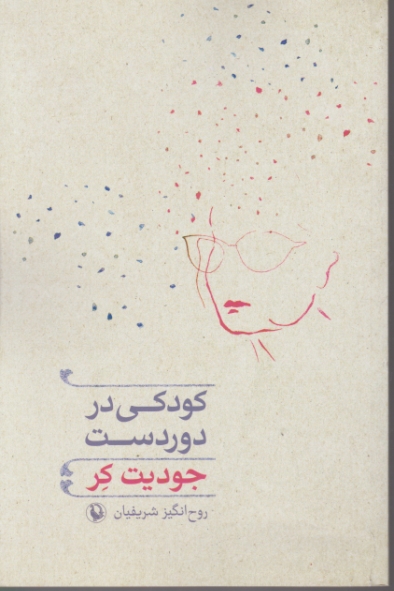 کودکی در
دوردست
جودیت کِر
روح‌انگیز شریفیان